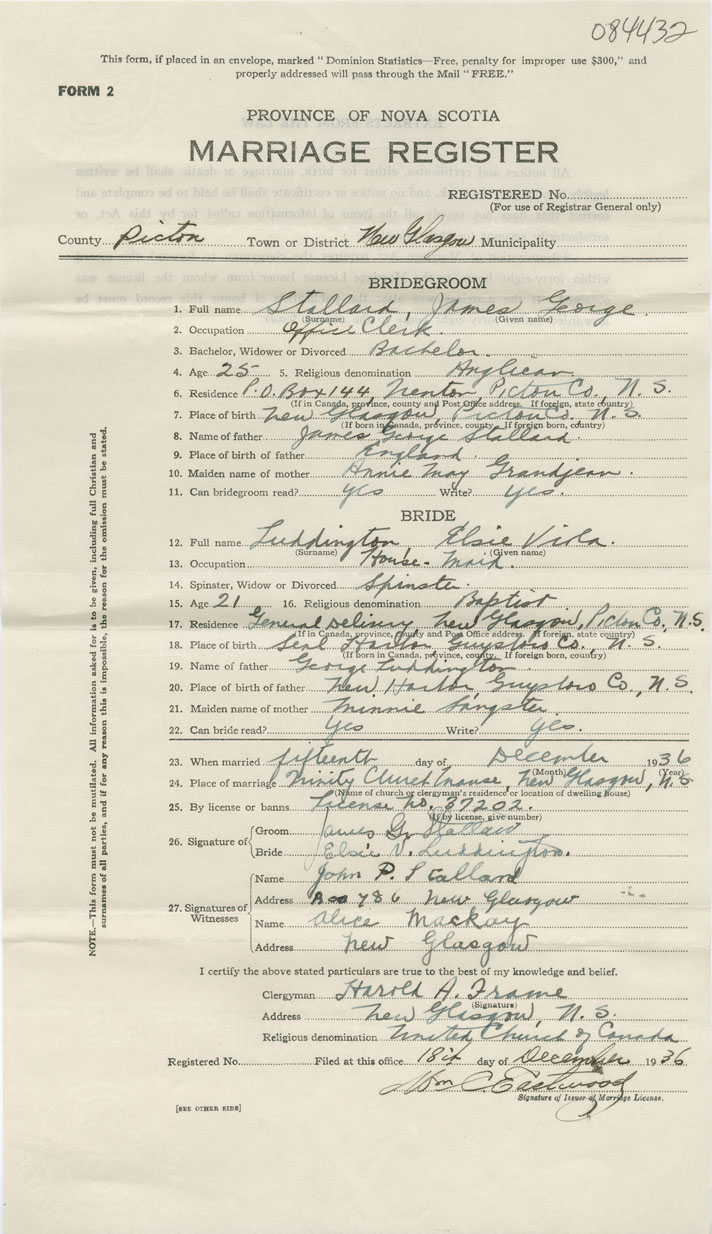 084432
This form, if placed in an envelope, marked "Dominion Statistics—Free, penalty for improper use $300," and
properly addressed will pass through the Mail "FREE."
FORM 2
PROVINCE OF NOVA SCOTIA
MARRIAGE REGISTER
REGISTERED No.
(For use of Registrar General only)
County Pictou Town or District New Glasgow Municipality
BRIDEGROOM
1. Full name Stallard, James George.
(Surname) (Given name)
2. Occupation Office Clerk.
3. Bachelor, Widower or Divorced Bachelor.
4. Age 25 5. Religious denomination Anglican
6. Residence P.O. Box 144, Trenton, Pictou Co., N. S.
(If in Canada, province, county and Post Office address. If foreign, state country)
7. Place of birth New Glasgow, Pictou Co. N. S.
(If born in Canada, province, county. If foreign born, country)
8. Name of father James George Stallard.
9. Place of birth of father England.
10. Maiden name of mother Annie May Grandjean.
11. Can bridegroom read? Yes Write? Yes.
BRIDE
12. Full name Luddington Elsie Viola.
(Surname) (Given name)
13. Occupation House-Maid.
14. Spinster, Widow or Divorced Spinster.
15. Age 21 16. Religious denomination Baptist
17. Residence General Delivery, New Glasgow, Pictou Co., N.S.
(If in Canada, province, county and Post Office address. If foreign, state country)
18. Place of birth Seal Harbor Guysboro Co., N. S.
(If born in Canada, province, county. If foreign born, country)
19. Name of father George Luddington
20. Place of birth of father New Harbor, Guysboro Co., N. S.
21. Maiden name of mother Minnie Sangster.
22. Can bride read? Yes Write? Yes.
23. When married fifteenth day of December 1936
(Month) (Year)
24. Place of marriage Trinity Church manse, New Glasgow, N. S.
(Name of church or clergyman's residence or location of dwelling house)
25. By license or banns License no. 37202.
(If by license, give number)
26. Signature of Groom James G. Stallard
Bride Elsie V. Luddington.
27. Signatures of Witnesses Name John P. Stallard
Address Box 786 New Glasgow
Name Alice Mackay
Address New Glasgow
I certify the above stated particulars are true to the best of my knowledge and belief.
Clergyman Harold A. Frame
(Signature)
Address New Glasgow, N. S.
Religious denomination United Church of Canada
Registered No. Filed at this office 18th day of December 1936
Wm C. Eastwood
Signature of Issuer of Marriage License.
[SEE OTHER SIDE]
NOTE.—This form must not be mutilated. All information asked for is to be given, including full Christian and
surnames of all parties, and if for any reason this is impossible, the reason for the omission must be stated.